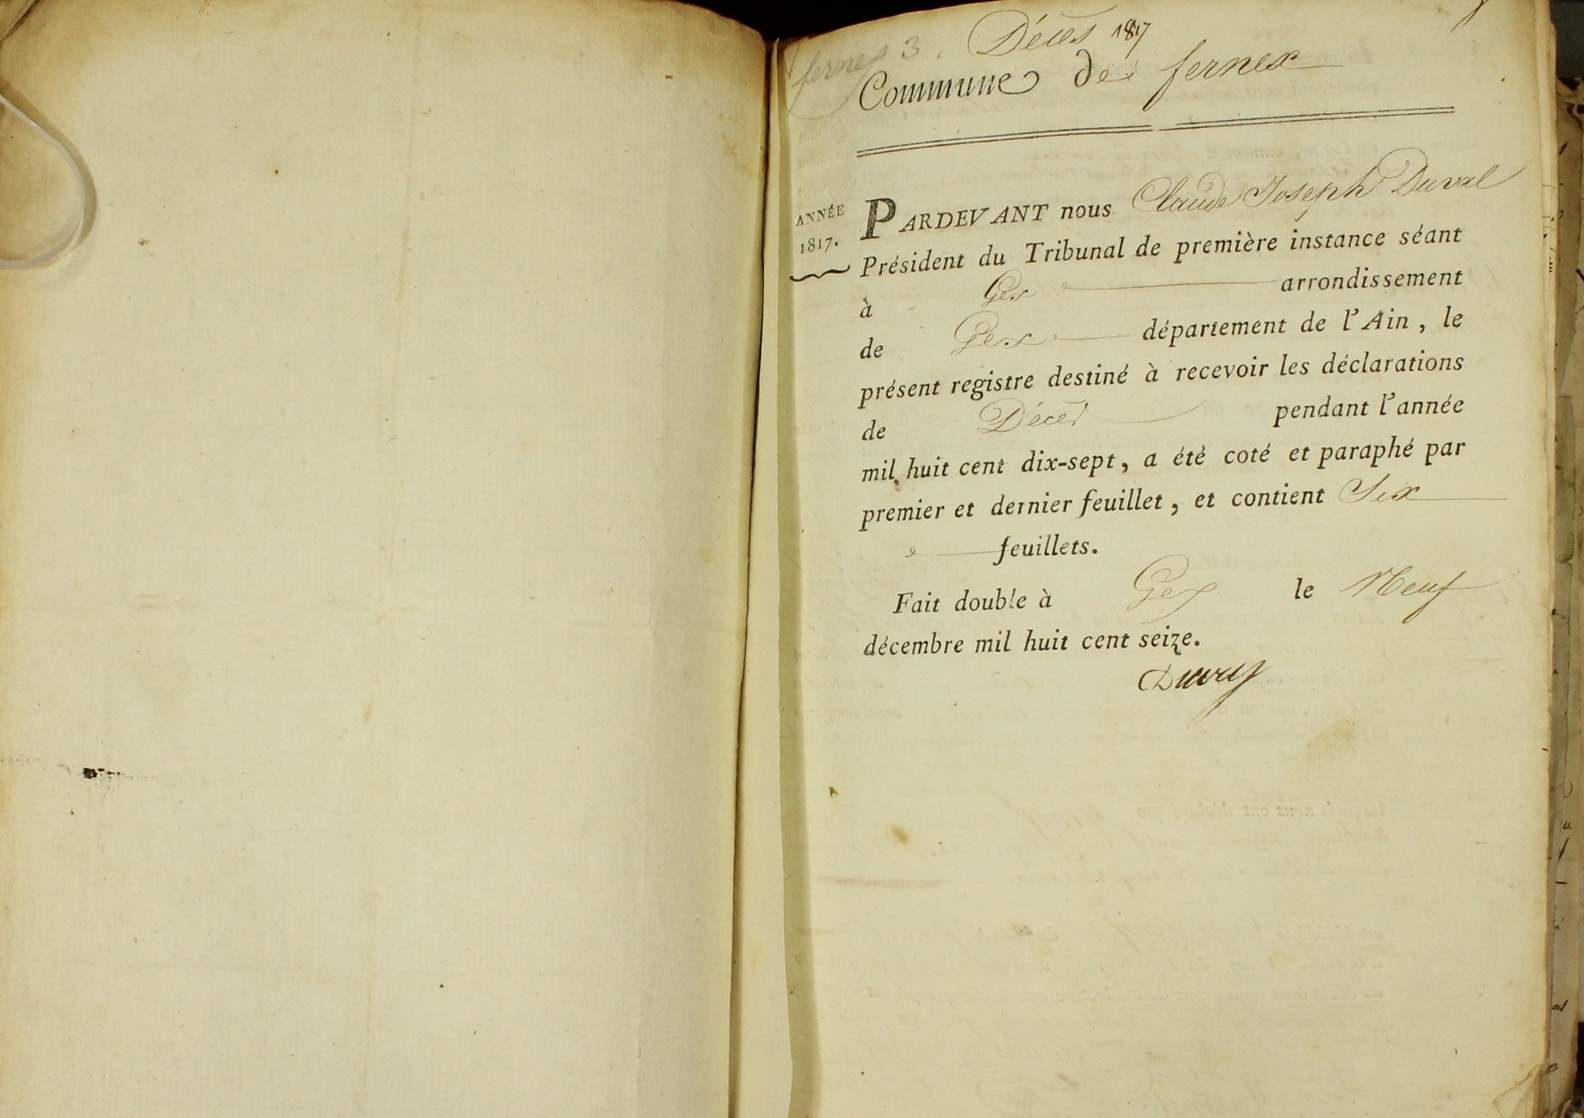 fernex 3.
Décès 1817
Commune de fernex
ANNÉE
1817.
PARDEVANT nous Claude Joseph Duval
Président du Tribunal de première instance séant
à Gex arrondissement
de Gex département de l'Ain, le
présent registre destiné à recevoir les déclarations
de Décès pendant l'année
mil huit cent dix-sept, a été coté et paraphé par
premier et dernier feuillet, et contient Six
feuillets.
Fait double à Gex le Neuf
décembre mil huit cent seize.